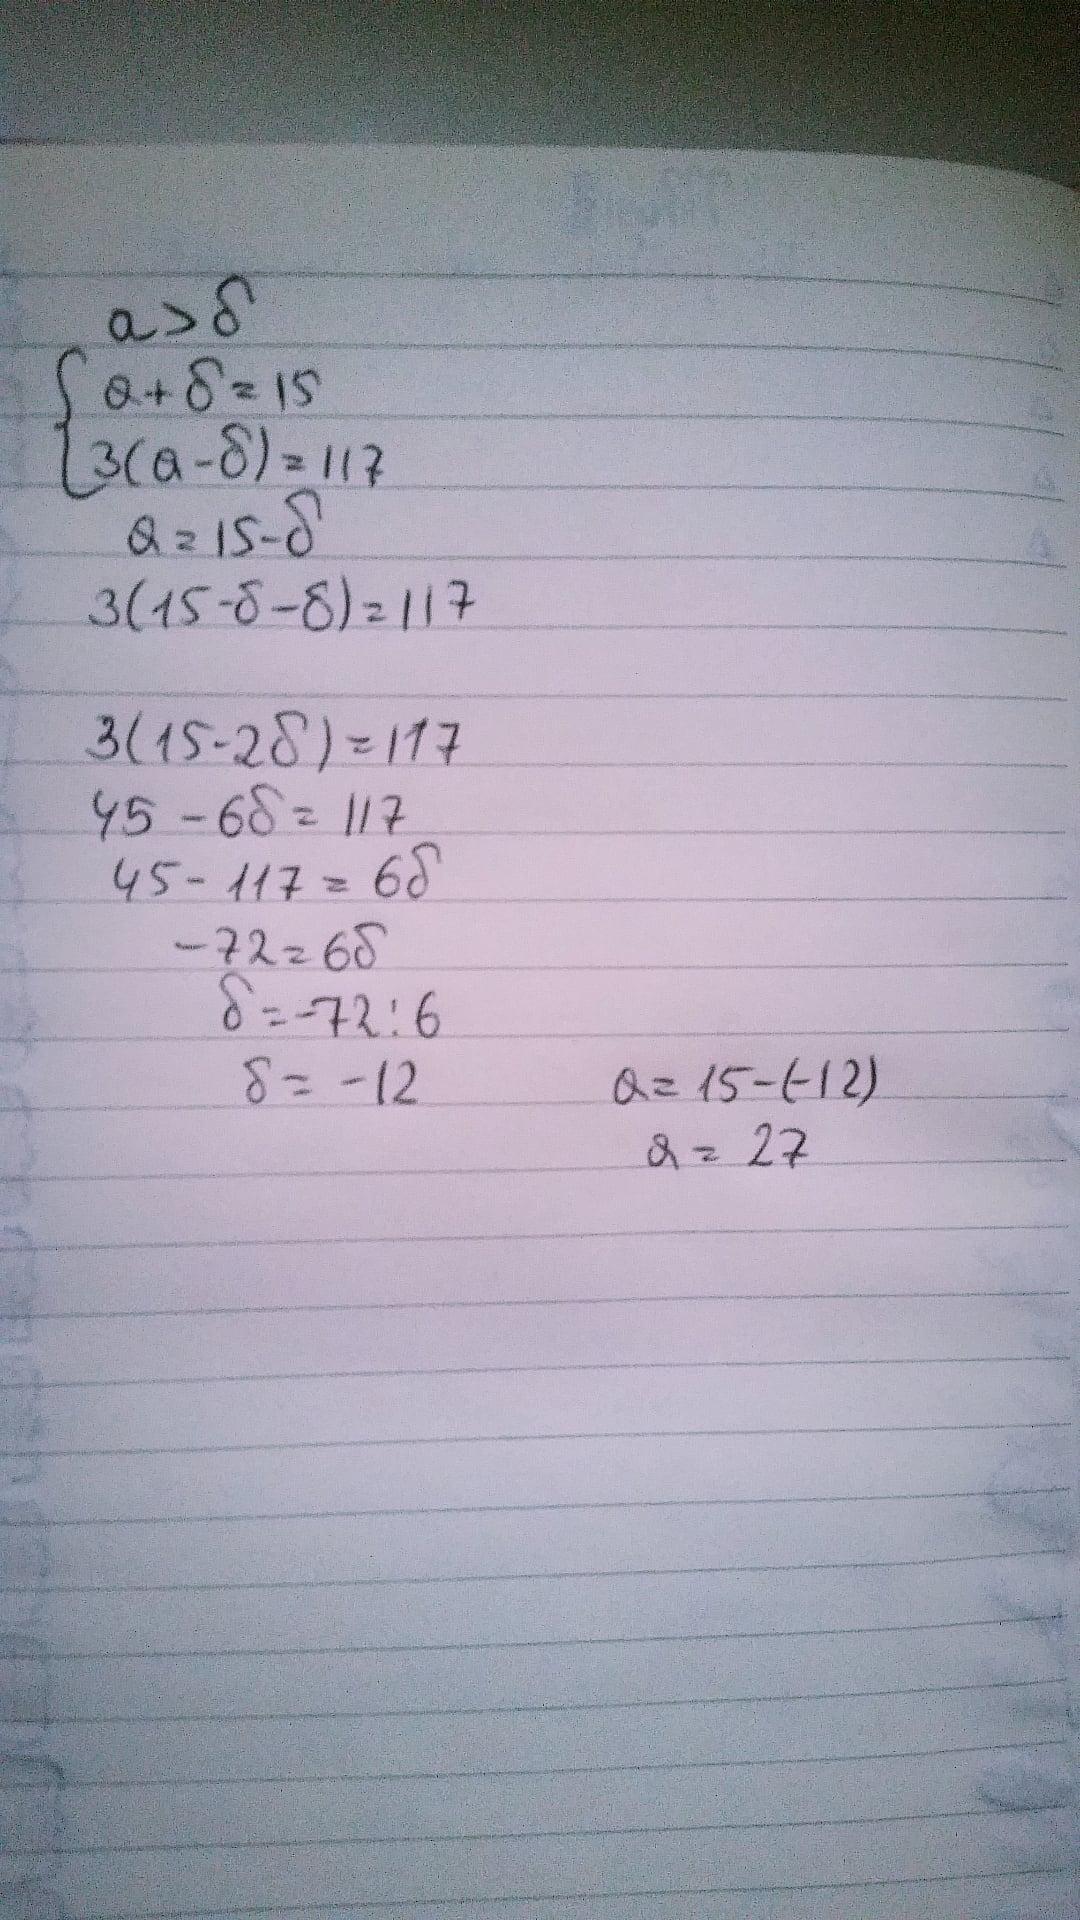 a>б
{ a+б=15
3(a-б)=117
a=15-б
3(15-б-б)=117
3(15-2б)=117
45-6б=117
45-117=6б
-72=6б
б=-72:6
б=-12 a=15-(-12)
a=27